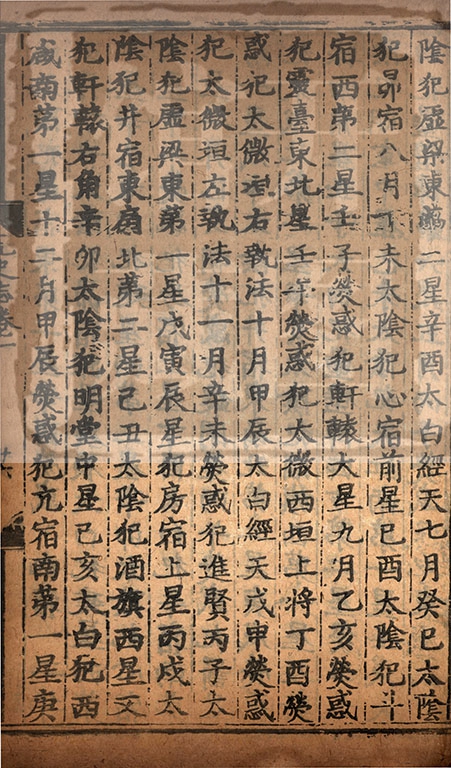 陰犯虛梁東第二星辛酉太白經天七月癸巳太陰
犯昴宿八月丁未太陰犯心宿前星己酉太陰犯斗
宿西第二星壬子熒惑犯軒轅大星九月乙亥熒惑
犯靈臺東北星壬午熒惑犯太微西垣上將丁酉熒
惑犯太微垣右執法十月甲辰太白經天戊申熒惑
犯太微垣左執法十一月辛未熒惑犯進賢丙子太
陰犯虛梁東第一星戊寅辰星犯房宿上星丙戌太
陰犯井宿東扇北第二星己丑太陰犯酒旗西星又
犯軒轅右角辛卯太陰犯明堂中星己亥太白犯西
咸南第一星十二月甲辰熒惑犯亢宿南第一星庚